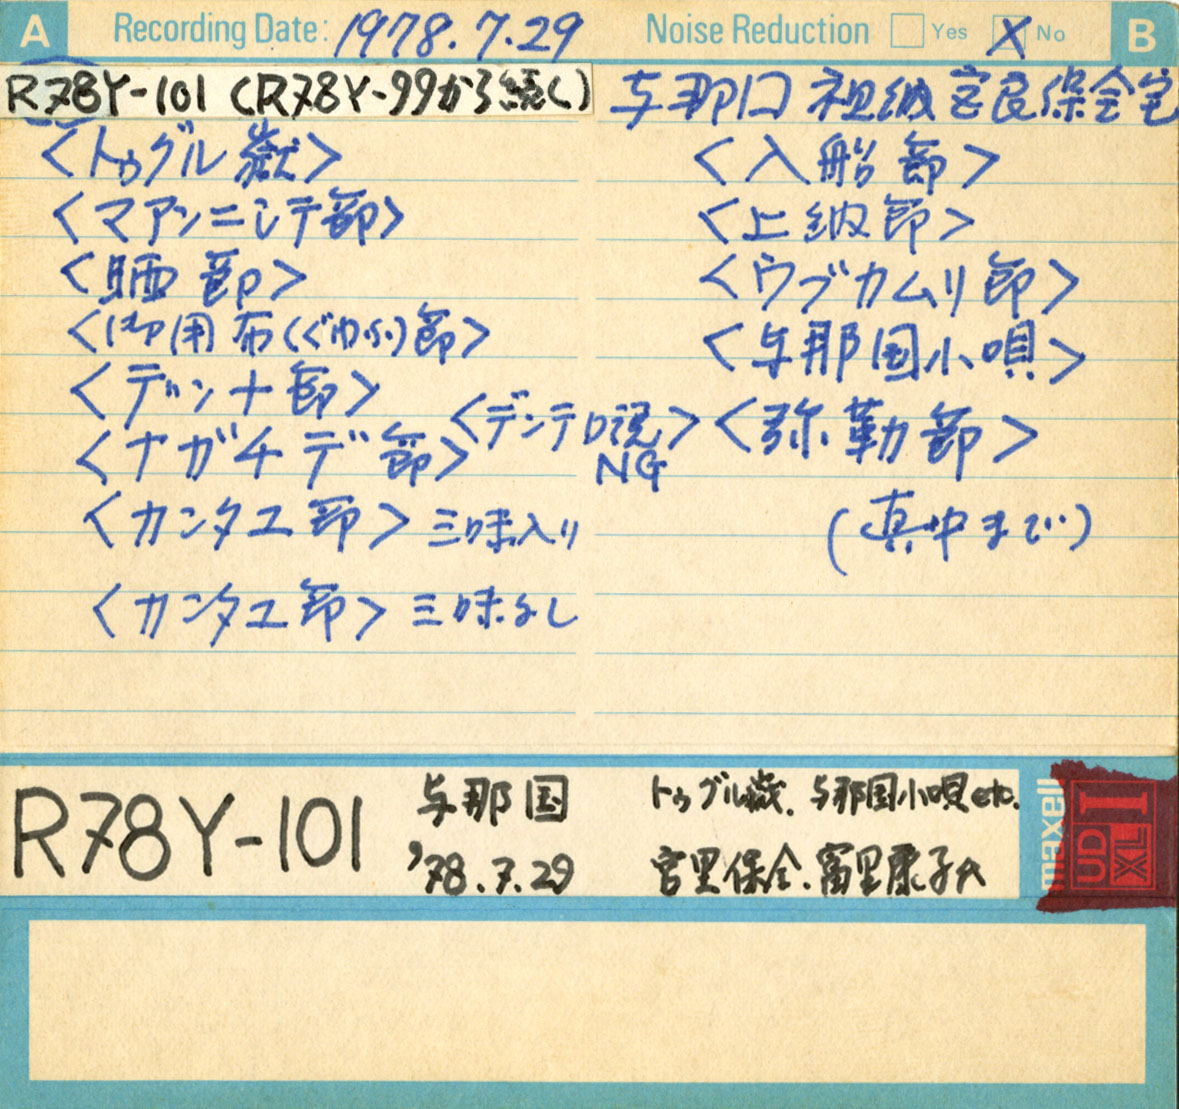 A Recording Date: 1978.7.29 Noise Reduction Yes X No B
R78Y-101 (R78Y-99から続く)
与那国 祖納 宮良保全宅
<トゥグル嶽>
<マアンニシテ節>
<晒節>
<御用布(ぐゆふ)節>
<デンナ節>
<デンテロ説>
NG
<ナガチデ節>
<カンタユ節> 三味入り
<カンタユ節> 三味なし
<入船節>
<上納節>
<ウブカムリ節>
<与那国小唄>
<弥勒節>
(真中まで)
R78Y-101
与那国
'78.7.29
トゥグル嶽. 与那国小唄etc.
宮里保全.富里康子氏
maxell
UD
XL
I